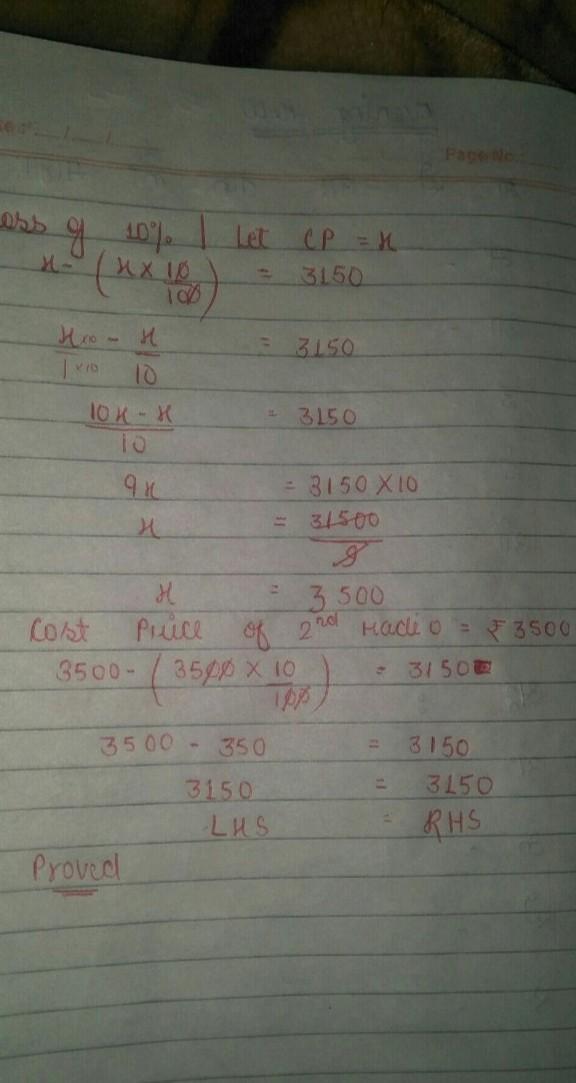 Page No.:
oss of 10% | Let CP = x
x - ( x × 10/100 ) = 3150
x×10/1×10 - x/10 = 3150
10x - x/10 = 3150
9x = 3150 × 10
x = 31500/9
x = 3500
Cost Price of 2nd radio = ₹3500
3500 - ( 3500 × 10/100 ) = 3150
3500 - 350 = 3150
3150 = 3150
LHS = RHS
Proved